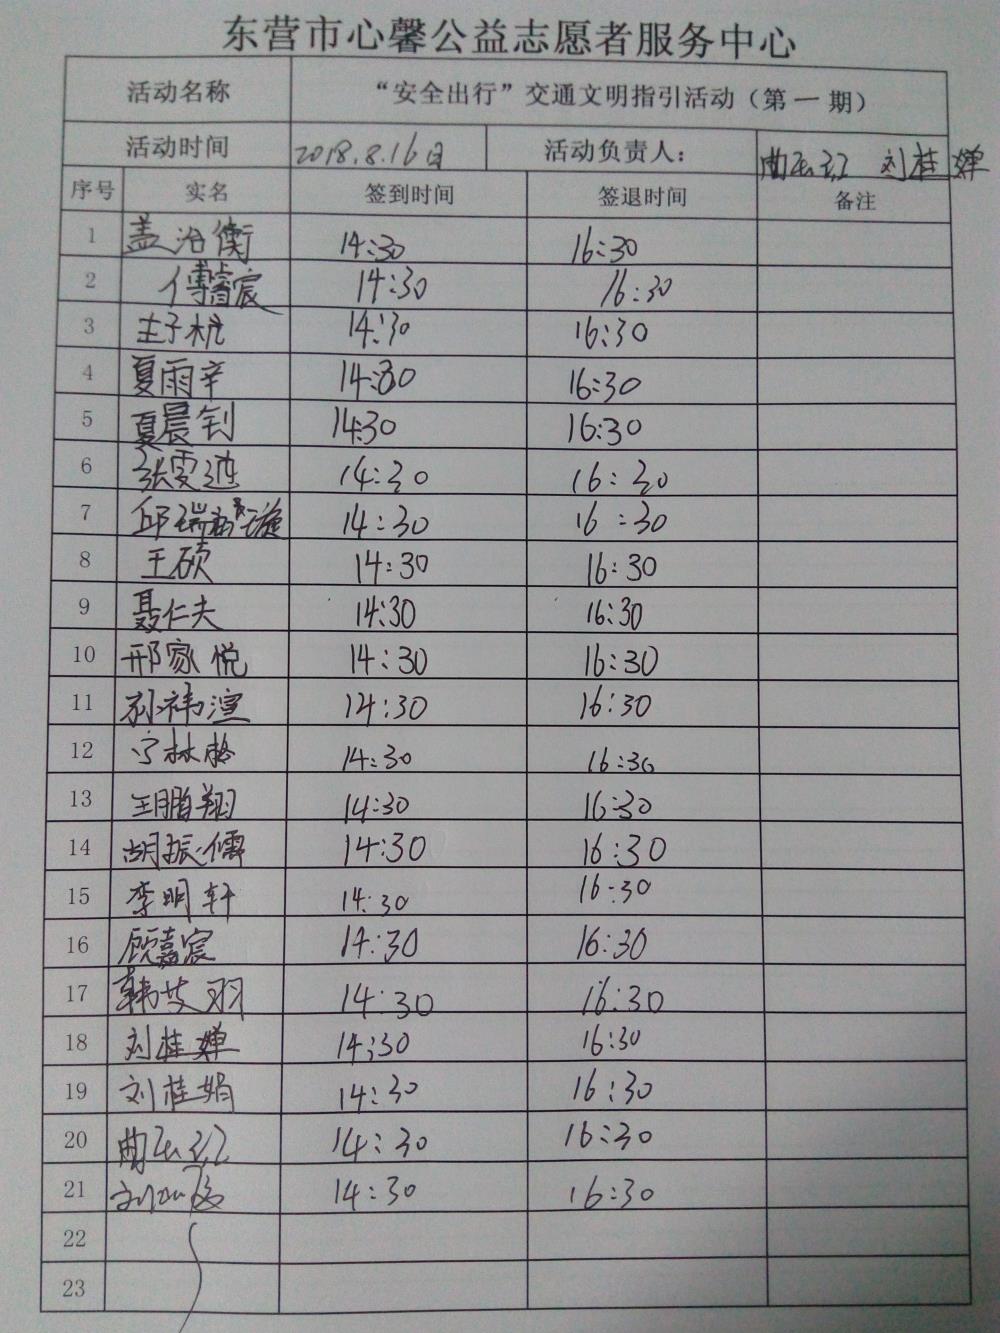 东营市心馨公益志愿者服务中心
活动名称 “安全出行”交通文明指引活动（第一期）
活动时间 2018.8.16日 活动负责人： 曲 刘桂婵
序号 实名 签到时间 签退时间 备注
1 盖治衡 14:30 16:30
2 傅睿宸 14:30 16:30
3 王子杭 14:30 16:30
4 夏雨辛 14:30 16:30
5 夏晨钊 14:30 16:30
6 张雯 14:30 16:30
7 邱瑞 璇 14:30 16:30
8 王硕 14:30 16:30
9 聂仁夫 14:30 16:30
10 邢家悦 14:30 16:30
11 孙祎渲 14:30 16:30
12 宁林格 14:30 16:30
13 王鹏翔 14:30 16:30
14 胡振儒 14:30 16:30
15 李明轩 14:30 16:30
16 顾嘉宸 14:30 16:30
17 韩艾羽 14:30 16:30
18 刘桂婵 14:30 16:30
19 刘桂娟 14:30 16:30
20 曲 14:30 16:30
21 刘 14:30 16:30
22
23